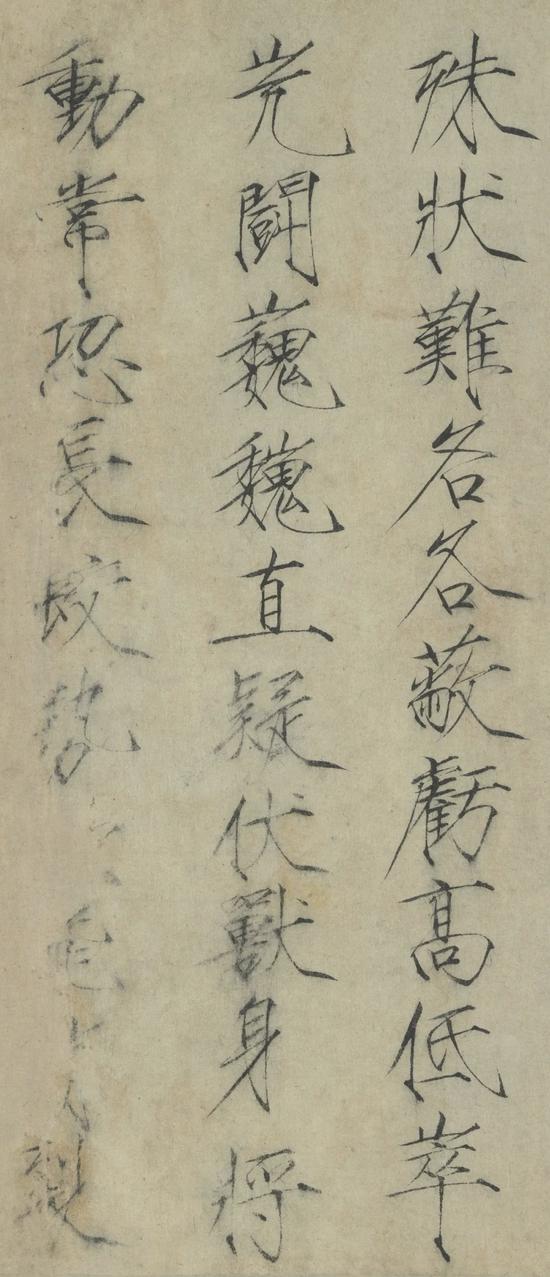 殊狀難名各蔽虧高低崒
屼鬪巍巍直疑伏獸身將
動常恐長蛟勢